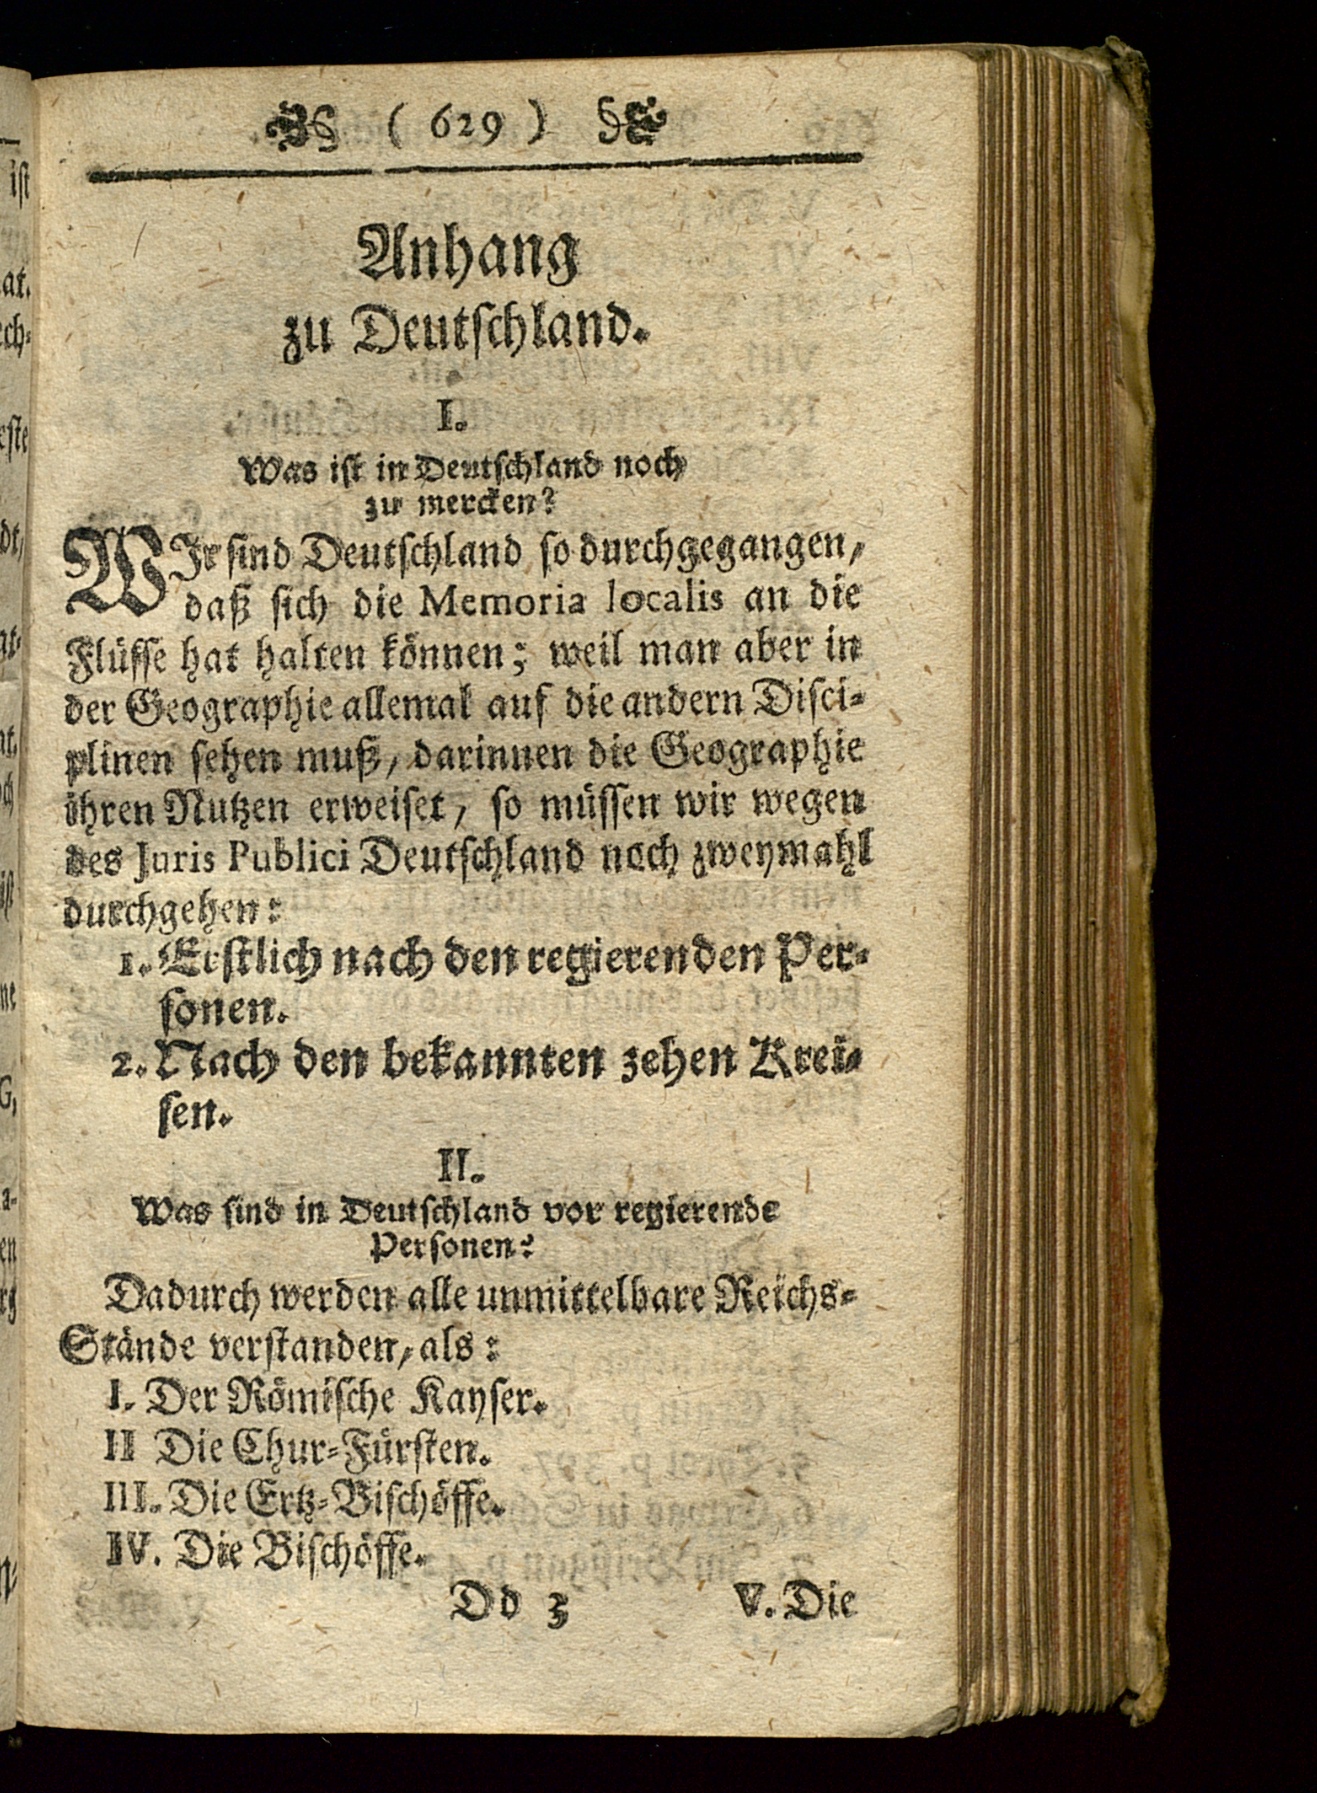 ( 629 )
Anhang
zu Deutschland.
I.
Was ist in Deutschland noch
zu mercken?
WIr sind Deutschland so durchgegangen,
daß sich die Memoria localis an die
Flüsse hat halten können; weil man aber in
der Geographie allemal auf die andern Disci-
plinen sehen muß, darinnen die Geographie
ihren Nutzen erweiset, so müssen wir wegen
des Juris Publici Deutschland noch zweymahl
durchgehen:
1. Erstlich nach den regierenden Per-
sonen.
2. Nach den bekannten zehen Krei-
sen.
II.
Was sind in Deutschland vor regierende
Personen?
Dadurch werden alle unmittelbare Reichs-
Stände verstanden, als:
I. Der Römische Kayser.
II Die Chur-Fürsten.
III. Die Ertz-Bischöffe.
IV. Die Bischöffe.
Dd 3 V. Die